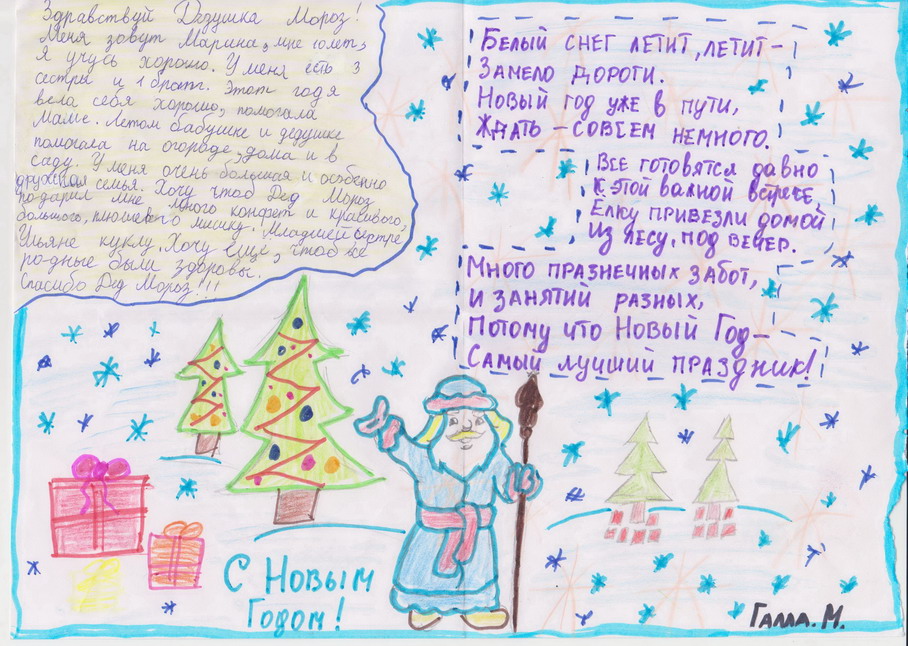 Здравствуй Дедушка Мороз!
Меня зовут Марина, мне 10 лет,
я учусь хорошо. У меня есть 3
сестры и 1 брат. Этот годя
вела себя хорошо, помогала
маме. Летом бабушке и дедушке
помогала на огороде, дома и в
саду. У меня очень большая и особенно
дружная семья. Хочу чтоб Дед Мороз
подарил мне много конфет и красивого,
большого, плюшевого мишку. Младшей сестре
Ульяне куклу. Хочу ещё, чтоб все
родные были здоровы.
Спасибо Дед Мороз!!!
Белый снег летит, летит-
Замело дороги.
Новый год уже в пути,
Ждать - совсем немного.
Все готовятся давно
К этой важной встрече,
Ёлку привезли домой
Из лесу, под вечер.
Много празнечных забот,
и занятий разных,
Потому что Новый Год-
Самый лучший праздник!
С Новым
Годом!
Галла. М.